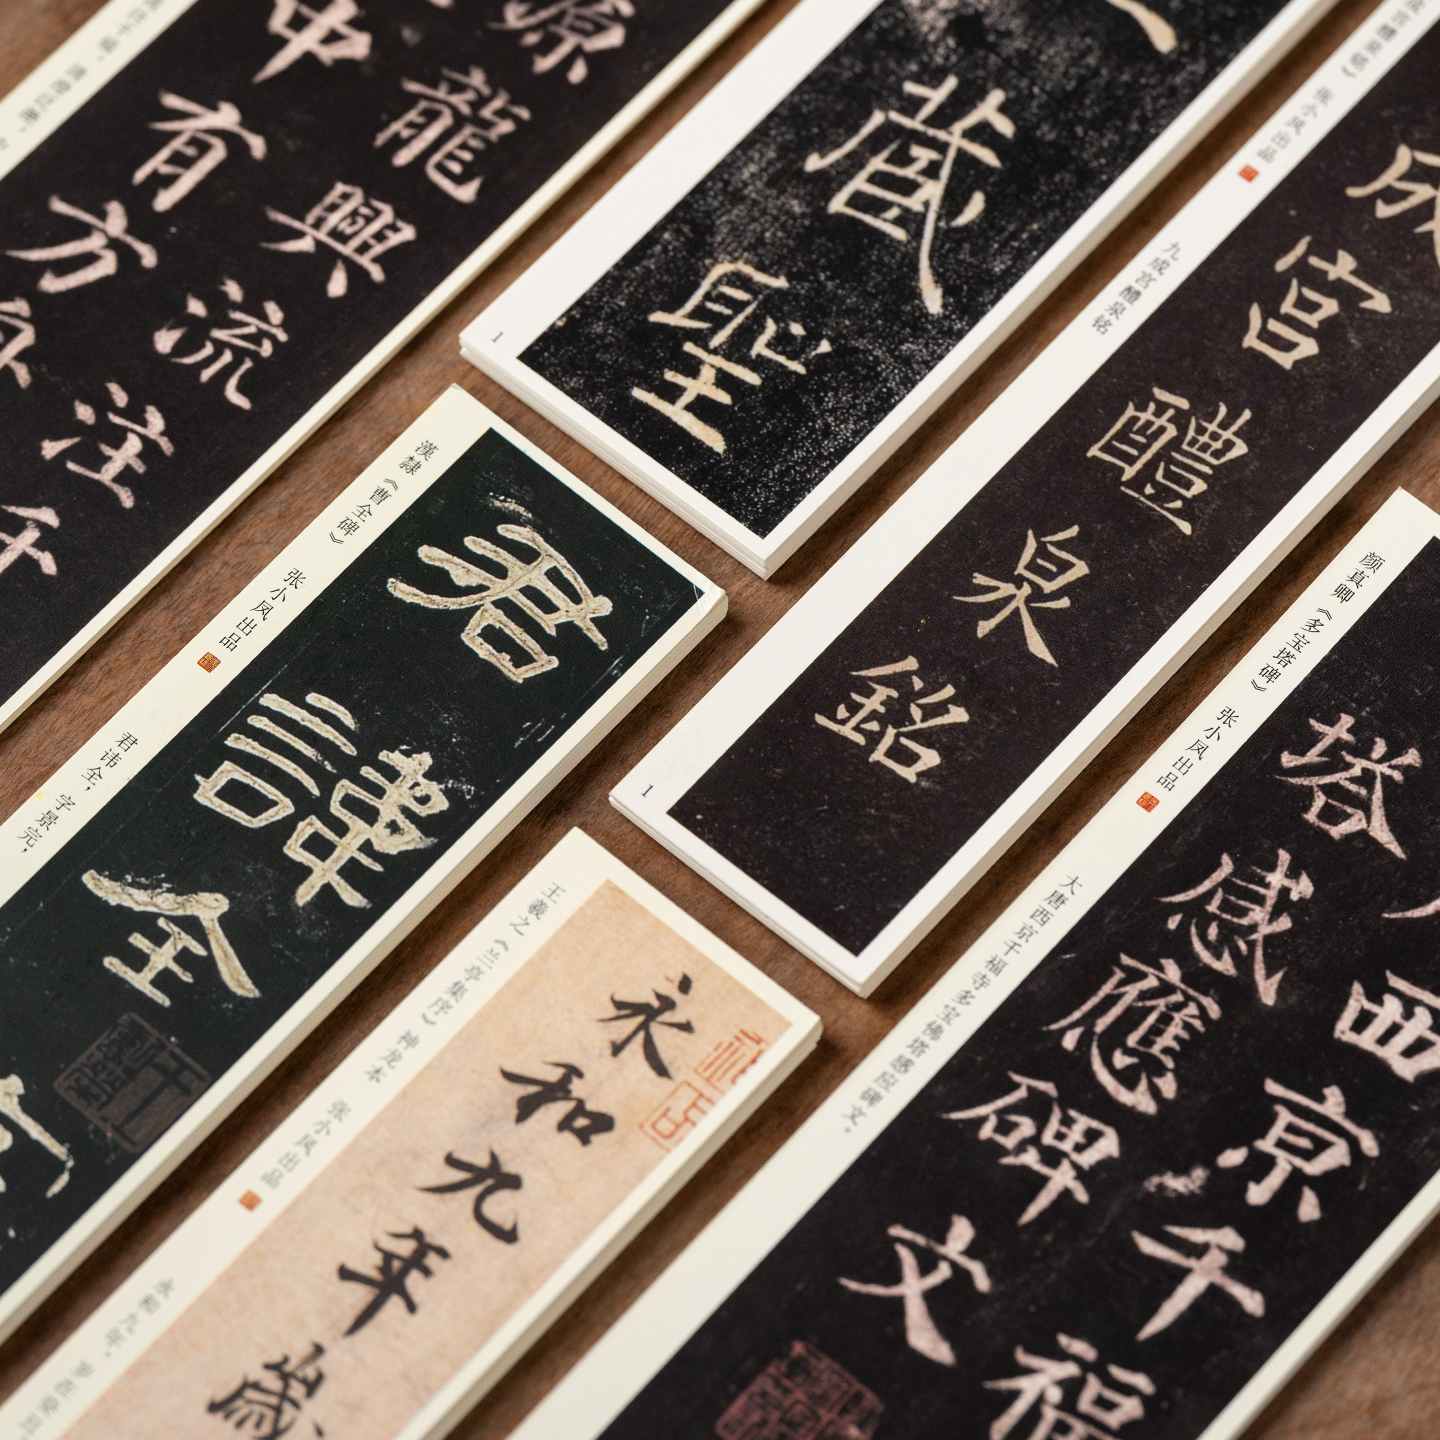 源龍興流注千
中有方
藏聖
1
成宮醴泉銘
張小凤出品
九成宫醴泉铭
1
漢隸《曹全碑》 张小凤出品
君讳全，字景完，
君諱全
王羲之《兰亭集序》神龙本 张小凤出品
永和九年，岁在癸丑
永和九年歲
颜真卿《多宝塔碑》 张小凤出品
大唐西京千福寺多宝佛塔感应碑文。
西京千福
塔感應碑文